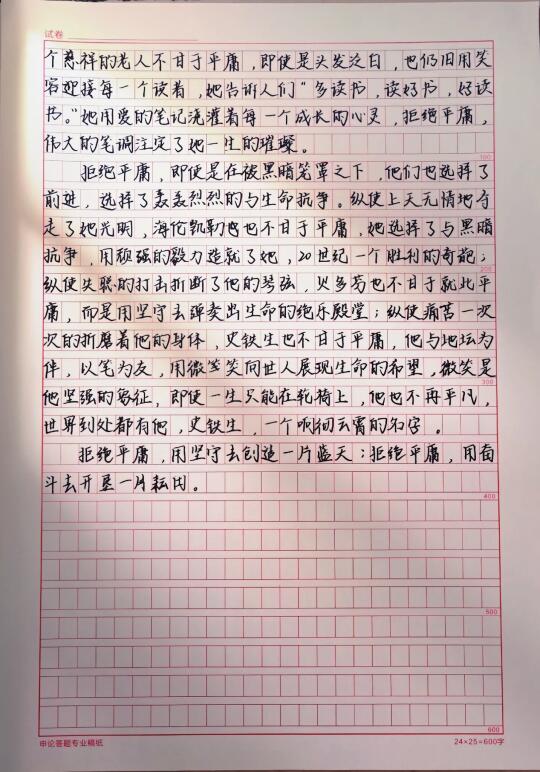 试卷
个慈祥的老人不甘于平庸，即使是头发泛白，也仍旧用笑
容迎接每一个读者，她告诉人们“多读书，读好书，好读
书。”她用爱的笔记浇灌着每一个成长的心灵，拒绝平庸，
伟大的笔调注定了她一生的璀璨。
拒绝平庸，即使是在被黑暗笼罩之下，他们也选择了
前进，选择了轰轰烈烈的与生命抗争。纵使上天无情地夺
走了她光明，海伦凯勒也也不甘于平庸，她选择了与黑暗
抗争，用顽强的毅力造就了她，20世纪一个胜利的奇葩；
纵使失聪的打击折断了他的琴弦，贝多芬也不甘于就此平
庸，而是用坚守去弹奏出生命的绝乐殿堂；纵使痛苦一次
次的折磨着他的身体，史铁生也不甘于平庸，他与地坛为
伴，以笔为友，用微笑笑向世人展现生命的希望，微笑是
他坚强的象征，即使一生只能在轮椅上，他也不再平凡，
世界到处都有他，史铁生，一个响彻云霄的名字。
拒绝平庸，用坚守去创造一片蓝天；拒绝平庸，用奋
斗去开垦一片耘田。
100
200
300
400
500
600
申论答题专业稿纸
24×25=600字